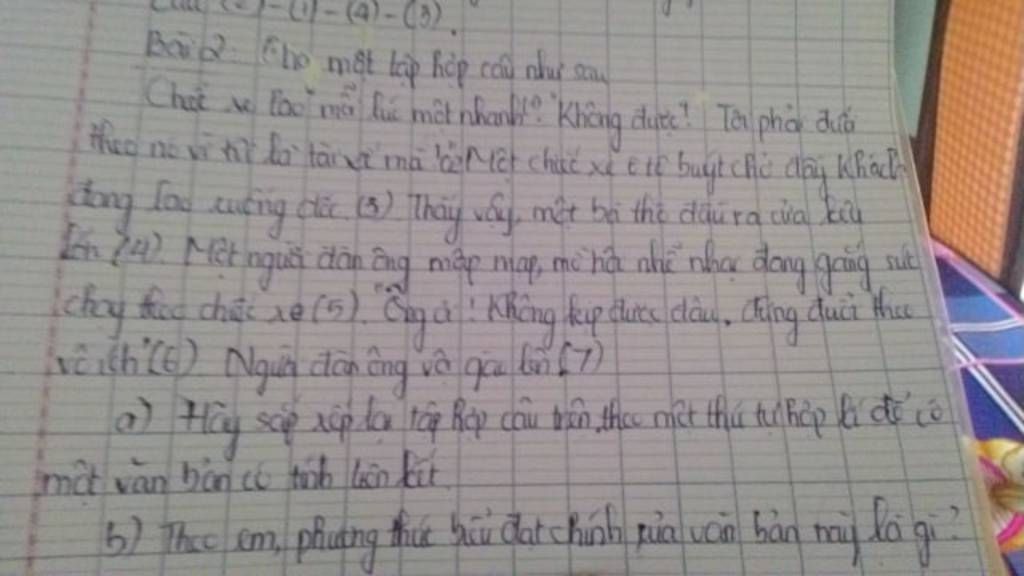 Câu (2) - (1) - (4) - (3).
Bài 2: Cho một tập hợp câu như sau
Chiếc xe lao mỗi lúc một nhanh". "Không được! Tôi phải đuổi
theo nó vì tôi là tài xế mà (2) Một chiếc xe ô tô buýt chở đầy khách
đang lao xuống dốc (3) Thấy vậy, một bà thò đầu ra cửa kêu
lớn (4). Một người đàn ông mập mạp, mồ hôi nhễ nhại đang gắng sức
chạy theo chiếc xe (5). "Ông ơi! Không kịp được đâu, đừng đuổi theo
vô ích" (6) Người đàn ông vội gào lên (7)
a) Hãy sắp xếp lại tập hợp câu trên theo một thứ tự hợp lí để có
một văn bản có tính liên kết.
b) Theo em, phương thức biểu đạt chính của văn bản này là gì?